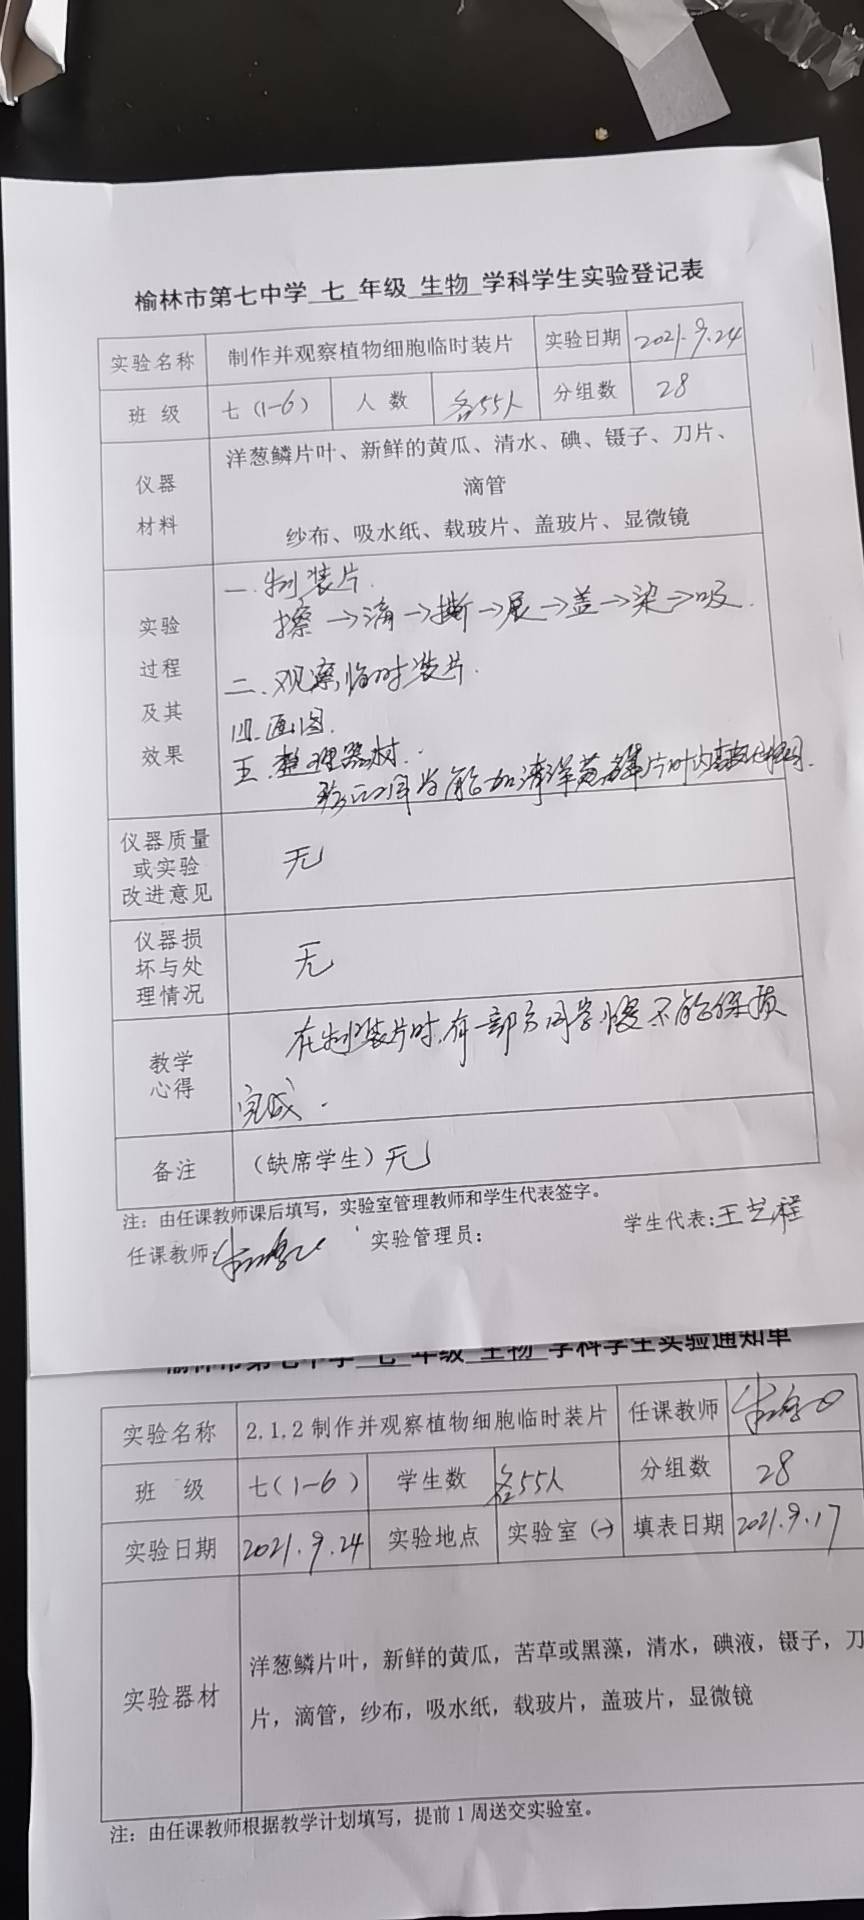 榆林市第七中学 七 年级 生物 学科学生实验登记表
实验名称 制作并观察植物细胞临时装片 实验日期 2021.9.24
班 级 七(1-6) 人 数 各55人 分组数 28
仪器
材料
洋葱鳞片叶、新鲜的黄瓜、清水、碘、镊子、刀片、
滴管
纱布、吸水纸、载玻片、盖玻片、显微镜
实验
过程
及其
效果
一.制装片.
擦→滴→撕→展→盖→染→吸.
二.观察临时装片.
四.画图.
五.整理器材.
同学能 洋葱鳞片叶内
仪器质量
或实验
改进意见
无
仪器损
坏与处
理情况
无
教学
心得
在制装片时,有一部分同学慢不能保质
完成.
备注 (缺席学生)无
注:由任课教师课后填写,实验室管理教师和学生代表签字。
任课教师: 实验管理员: 学生代表:王艺程
榆林市第七中学 七 年级 生物 学科学生实验通知单
实验名称 2.1.2制作并观察植物细胞临时装片 任课教师
班 级 七(1-6) 学生数 各55人 分组数 28
实验日期 2021.9.24 实验地点 实验室(一) 填表日期 2021.9.17
实验器材
洋葱鳞片叶,新鲜的黄瓜,苦草或黑藻,清水,碘液,镊子,刀
片,滴管,纱布,吸水纸,载玻片,盖玻片,显微镜
注:由任课教师根据教学计划填写,提前1周送交实验室。